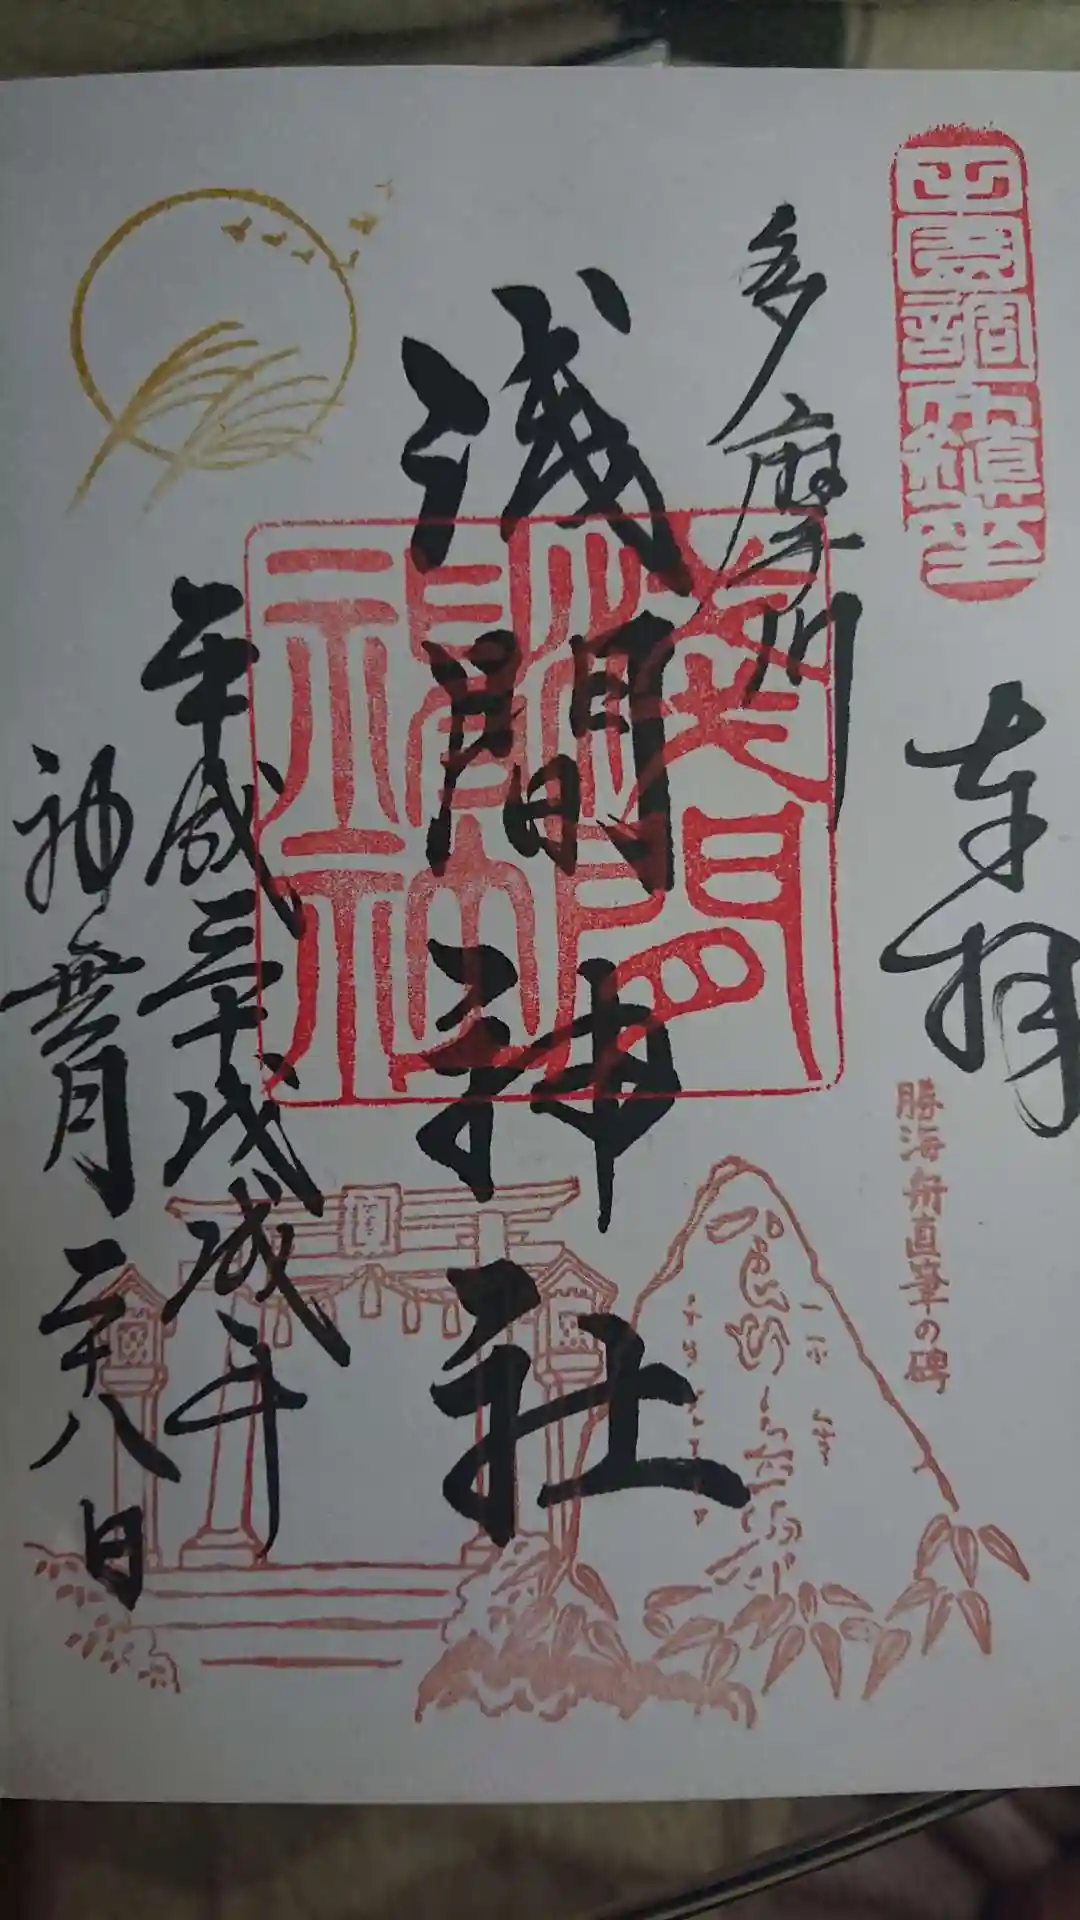 田園調布鎮座
奉拝
勝海舟直筆の碑
多摩川
浅間神社
浅間神社
平成三十戊戌年
神無月二十八日